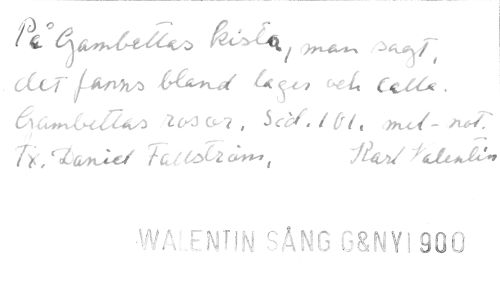 På Gambettas kista, man sagt,
det fanns bland lager och calla.
Gambettas rosor. Sid. 101. med-not.
Tx. Daniel Fallström, Karl Valentin
WALENTIN SÅNG G&NY1900